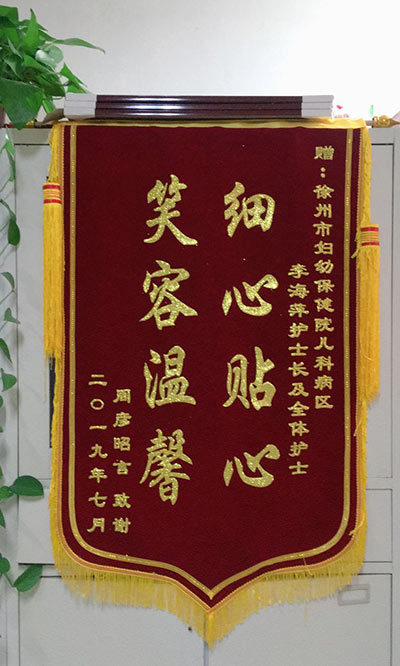 赠：徐州市妇幼保健院儿科病区
李海萍护士长及全体护士
细心贴心
笑容温馨
周彦昭言 致谢
二〇一九年七月